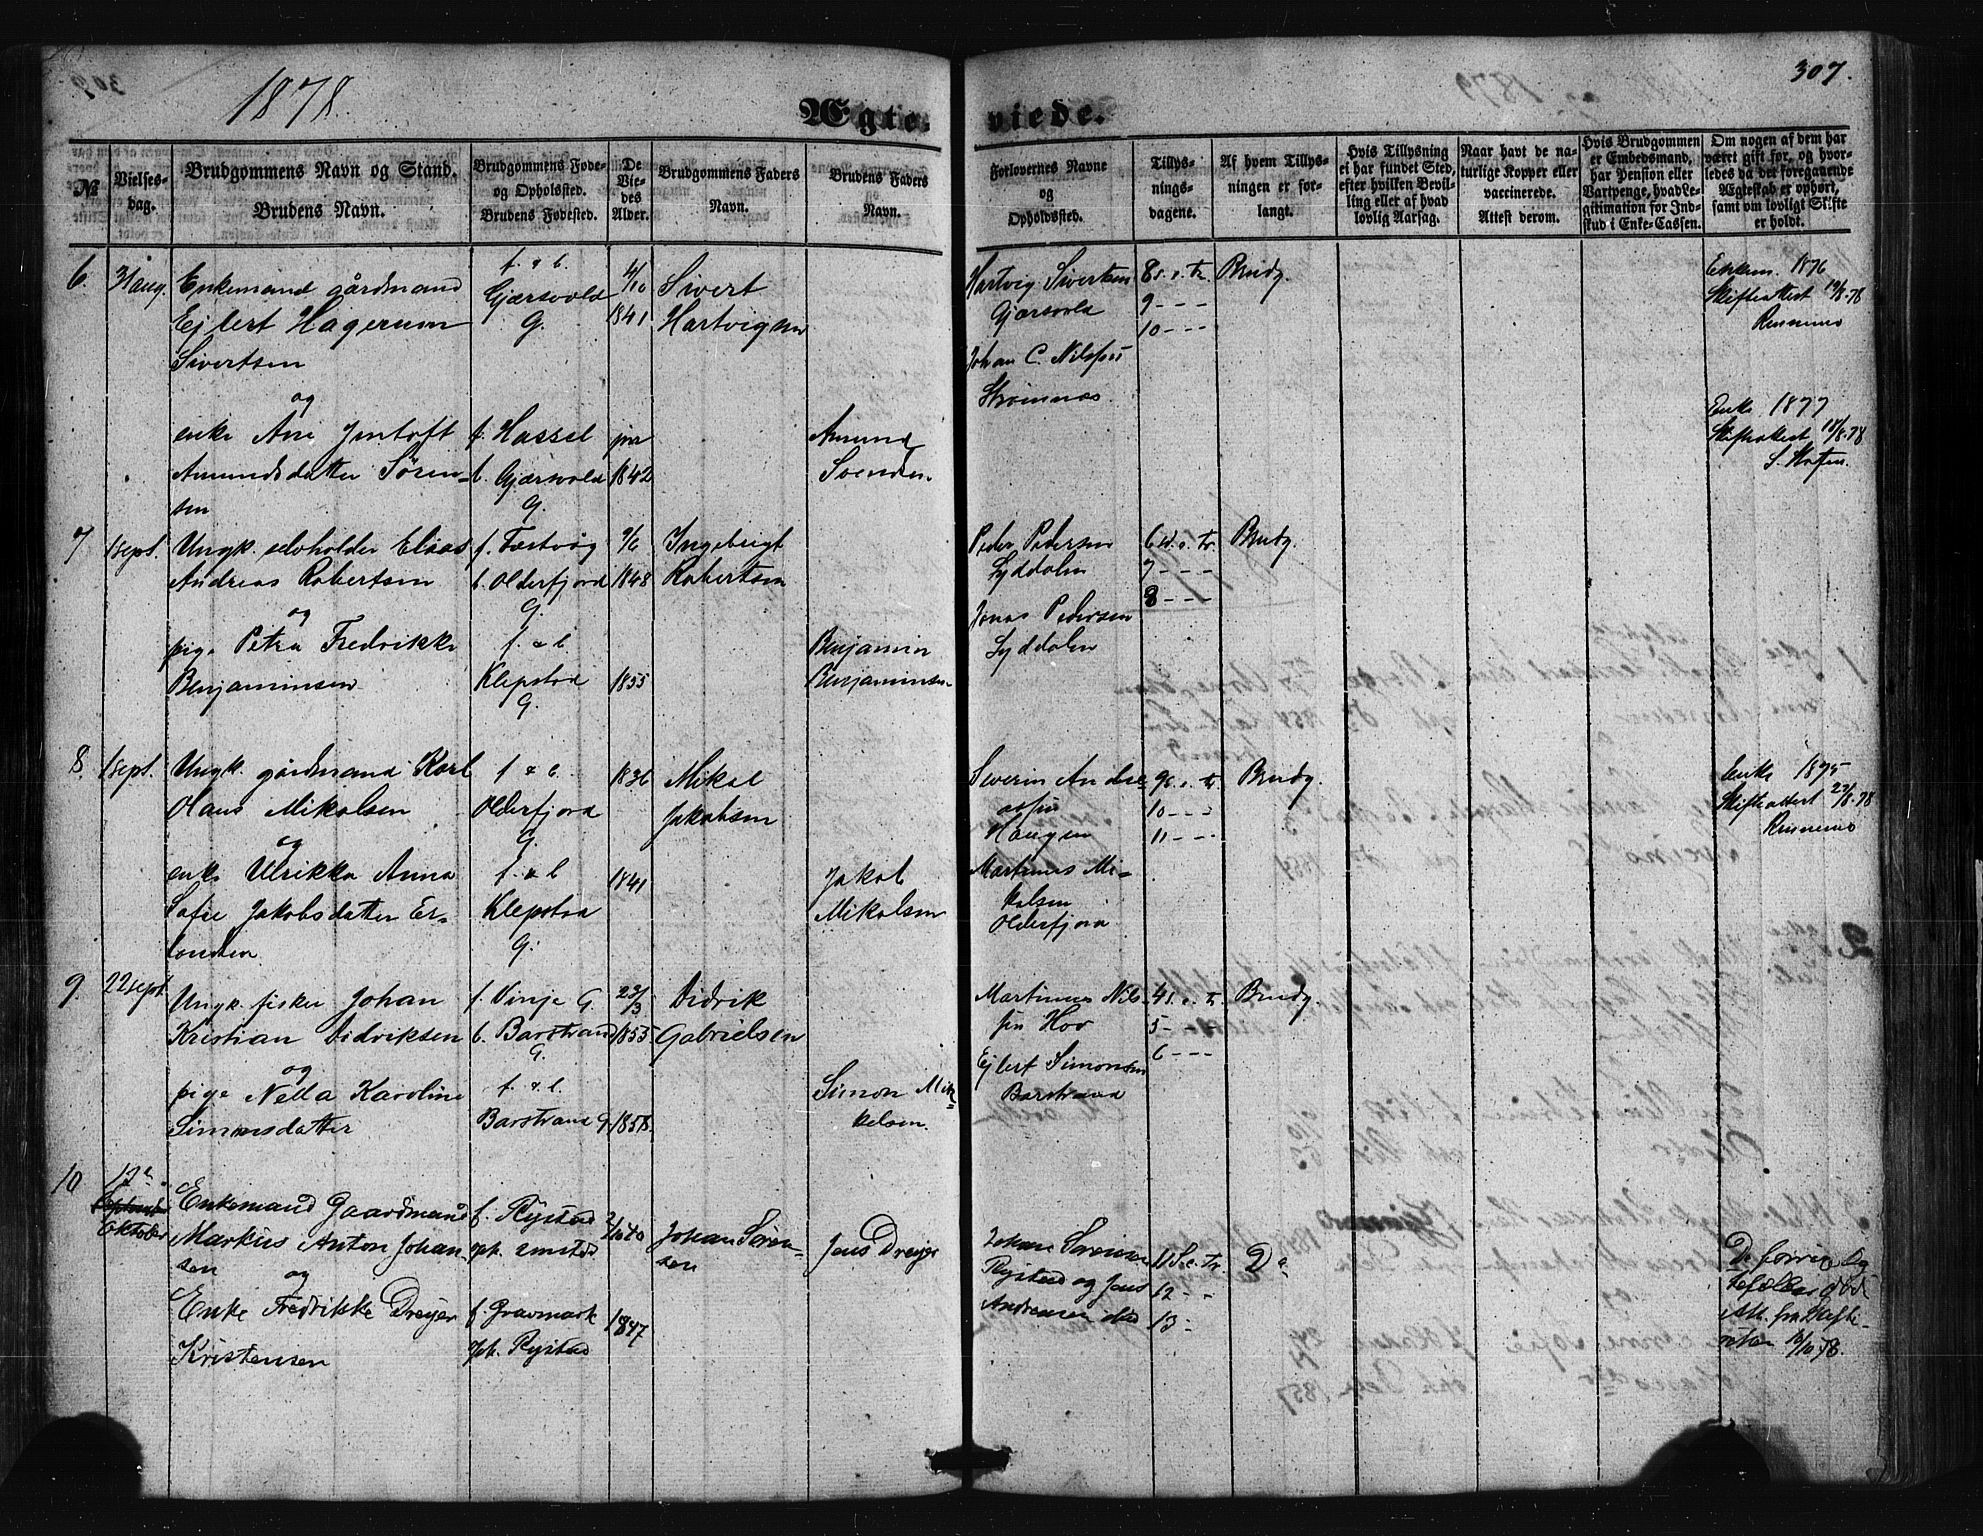 1878.
307.
Ægte-
viede.
№
Vielses-
dag.
Brudgommens Navn og Stand.
Brudens Navn.
Brudgommens Føde-
og Opholssted.
Brudens Fødested.
De
Vie-
des
Alder.
Brudgommens Faders
Navn.
Brudens Faders
Navn.
Forlovernes Navne
og
Opholdssted.
Tillys-
nings-
dagene.
Af hvem Tillys-
ningen er for-
langt.
Hvis Tillysning
ei har fundet Sted,
efter hvilken Bevil-
ling eller af hvad
lovlig Aarsag.
Naar havt de na-
turlige Kopper eller
vaccinerede.
Attest derom.
Hvis Brudgommen
er Embedsmand,
har Pension eller
Vartpenge, hvad Le-
gitimation for Ind-
skud i Enke-Cassen.
Om nogen af dem har
været gift før, og hvor-
ledes da det foregaaende
Ægteskab er ophørt,
samt om lovligt Skifte
er holdt.
6.
31 aug.
Enkemand gårdmand
Ejlert Hagerum
Sivertsen
og
enke Ane Jentoft
Amundsdatter Søren-
sen
f. & b.
Gjærsvold
G.
f. Hassel
b. Gjærsvold
G.
4/10
1841
1842
Sivert
Hartvigsen
Amund
Svendsen.
Hartvig Sivertsen
Gjærsvold
Johan C. Nilssen
Strømnes
8 s. e. tr.
9 - - -
10 - - -
Brudg.
Enkem. 1876
Skifteattest 19/8-78
Rennemo
Enke 1877
Skifteattest 18/8-78
7
1 sept.
Ungk. selveholder Elias
Andreas Robertsen
og
pige Petra Fredrikke
Benjaminsen
b. Olderfjord
G.
f. & b.
Klepstad
G.
9/6
1848
1855
Ingebrigt
Robertsen
Benjamin
Benjaminsen
Peder Pedersen
Lyddalen
Jonas Pedersen
Lyddalen
6 s. e. tr.
7 - - -
8 - - -
Brudg.
8.
1 sept.
Ungk. gårdmand Karl
Olaus Mikalsen
og
enke Ulrikka Anna
Sofie Jakobsdatter Er-
landsen
f & b.
Olderfjord
G.
f. & b
Klepstad
G.
1836
1841
Mikal
Jakobsen
Jakob
Mikalsen
Severin Andre-
assen
Haugen
Martinus Mi-
kalsen
Olderfjord
9 s. e. tr.
10 - - -
11 - - -
Brudg.
Enke 1875
Skifteattest 27/8-78
Rennemo
9.
22 sept.
Ungk. fisker Johan
Kristian Didriksen
og
pige Nella Karoline
Simonsdatter
f. Vinje G.
b. Barstrand
G.
f. & b.
Barstrand G.
23/3
1855
1858.
Didrik
Gabrielsen
Simon Mik-
kelsen.
Martinus Nils-
sen Hov
Ejlert Simonsen
Barstrand
4 s. e. tr.
5 - - -
6 - - -
Brudg.
10
13de
Oktober
Enkemand Gaardmand
Markus Anton Johan
sen
og
Enke Fredrikke Dreyer
Kristensen
f. Rystad
oph. smsteds
f. Gravmark
Oph. Rystad
1847
Johan Søren-
sen
Jens Dreyer
Johan Sørensen
Rystad og Jens
Andreasen
11 S. e. Tr.
12 - -
13 -
Do
De forrige Æg
tefæller døde
Att. fra Skifte-
retten 12/10 78.